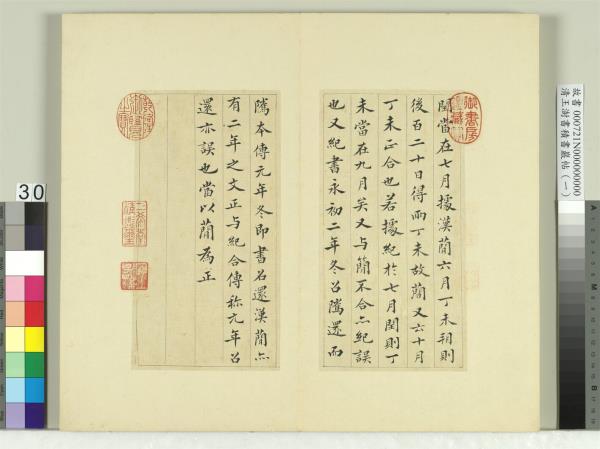 閏當在七月據漢蕳六月丁未朔則
後百二十日得兩丁未故蕳又六十月
丁未正合也若據紀於七月閏則丁
未當在九月矣又与簡不合亦紀誤
也又紀書永初二年冬召隲還而
隲本傳元年冬即書名還漢蕳亦
有二年之文正与紀合傳称元年召
還亦誤也當以蕳為正
御書房
故書 000721N000000000
清王澍書積書巖帖（一）
30